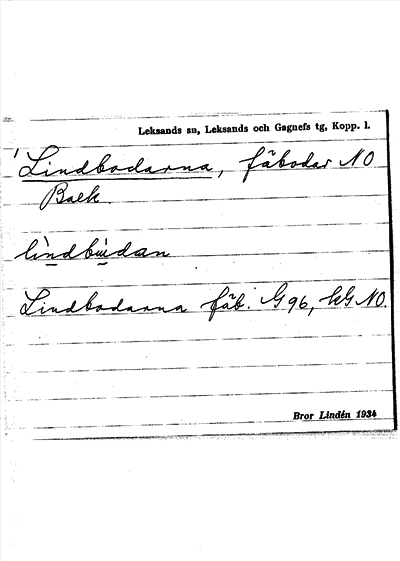 Leksands sn, Leksands och Gagnefs tg, Kopp. l.
Lindbodarna, fäbodar NO
Baek
lìndbùdan
Lindbodarna fäb. G96, kG NO.
Bror Lindén 1934